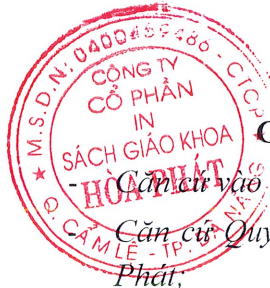 M.S.D.N: 0400459486 - CTCP
CÔNG TY
CỔ PHẦN
IN
SÁCH GIÁO KHOA
HÒA PHÁT
Q. CẨM LỆ - TP. ĐÀ NẴNG
- Căn cứ vào
- Căn cứ Quy
Phát;